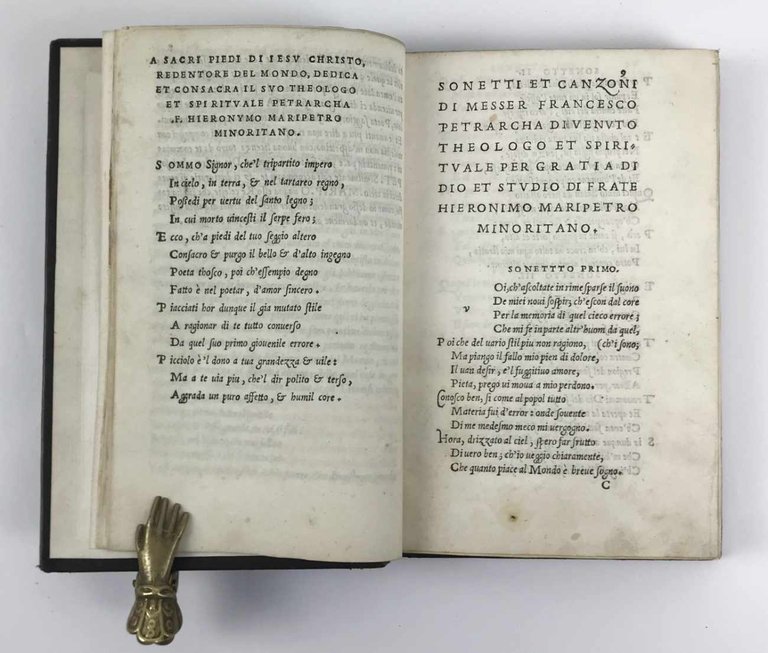 A SACRI PIEDI DI IESV CHRISTO,
REDENTORE DEL MONDO, DEDICA
ET CONSACRA IL SVO THEOLOGO
ET SPIRITVALE PETRARCHA
.F. HIERONYMO MARIPETRO
MINORITANO.
SOMMO Signor, che'l tripartito impero
In cielo, in terra, & nel tartareo regno,
Possedi per uertu del santo legno;
In cui morto uincesti il serpe fero;
Ecco, ch'a piedi del tuo seggio altero
Consacro & purgo il bello & d'alto ingegno
Poeta thosco, poi ch'essempio degno
Fatto è nel poetar, d'amor sincero.
Piacciati hor dunque il gia mutato stile
A ragionar di te tutto conuerso
Da quel suo primo giouenile errore.
Picciolo è'l dono a tua grandezza & uile:
Ma a te uia piu, che'l dir polito & terso,
Aggrada un puro affetto, & humil core.
SONETTO II.
SONETTI ET CANZONI
DI MESSER FRANCESCO
PETRARCHA DIVENVTO
THEOLOGO ET SPIRI-
TVALE PER GRATIA DI
DIO ET STVDIO DI FRATE
HIERONIMO MARIPETRO
MINORITANO.
SONETTTO PRIMO.
Oi; ch'ascoltate in rime sparse il suono
De miei noui sospir; ch'escon dal core
v
Per la memoria di quel cieco errore;
Che mi fe in parte altr'huom da quel,
Poi che del uario stil piu non ragiono, (ch'i sono;
Ma piango il fallo mio pien di dolore,
Il uan desir, e'l fuggitiuo amore,
Pieta, prego ui moua a mio perdono.
Conosco ben, si come al popol tutto
Materia fui d'error: onde souente
Di me medesmo meco mi uergogno.
Hora, drizzato al ciel, spero far frutto
Di uero ben; ch'io ueggio chiaramente,
Che quanto piace al Mondo è breue sogno.
C